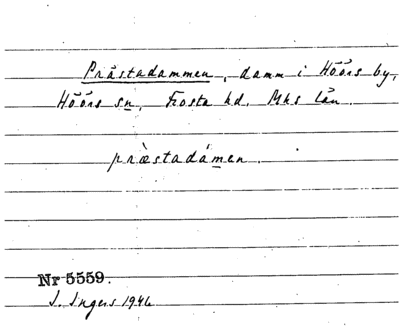 Prästadammen, damm i Höörs by,
Höörs sn, Frosta hd. Mhs län.
præ̀stadámen.
Nr 5559.
I. Ingers 1946